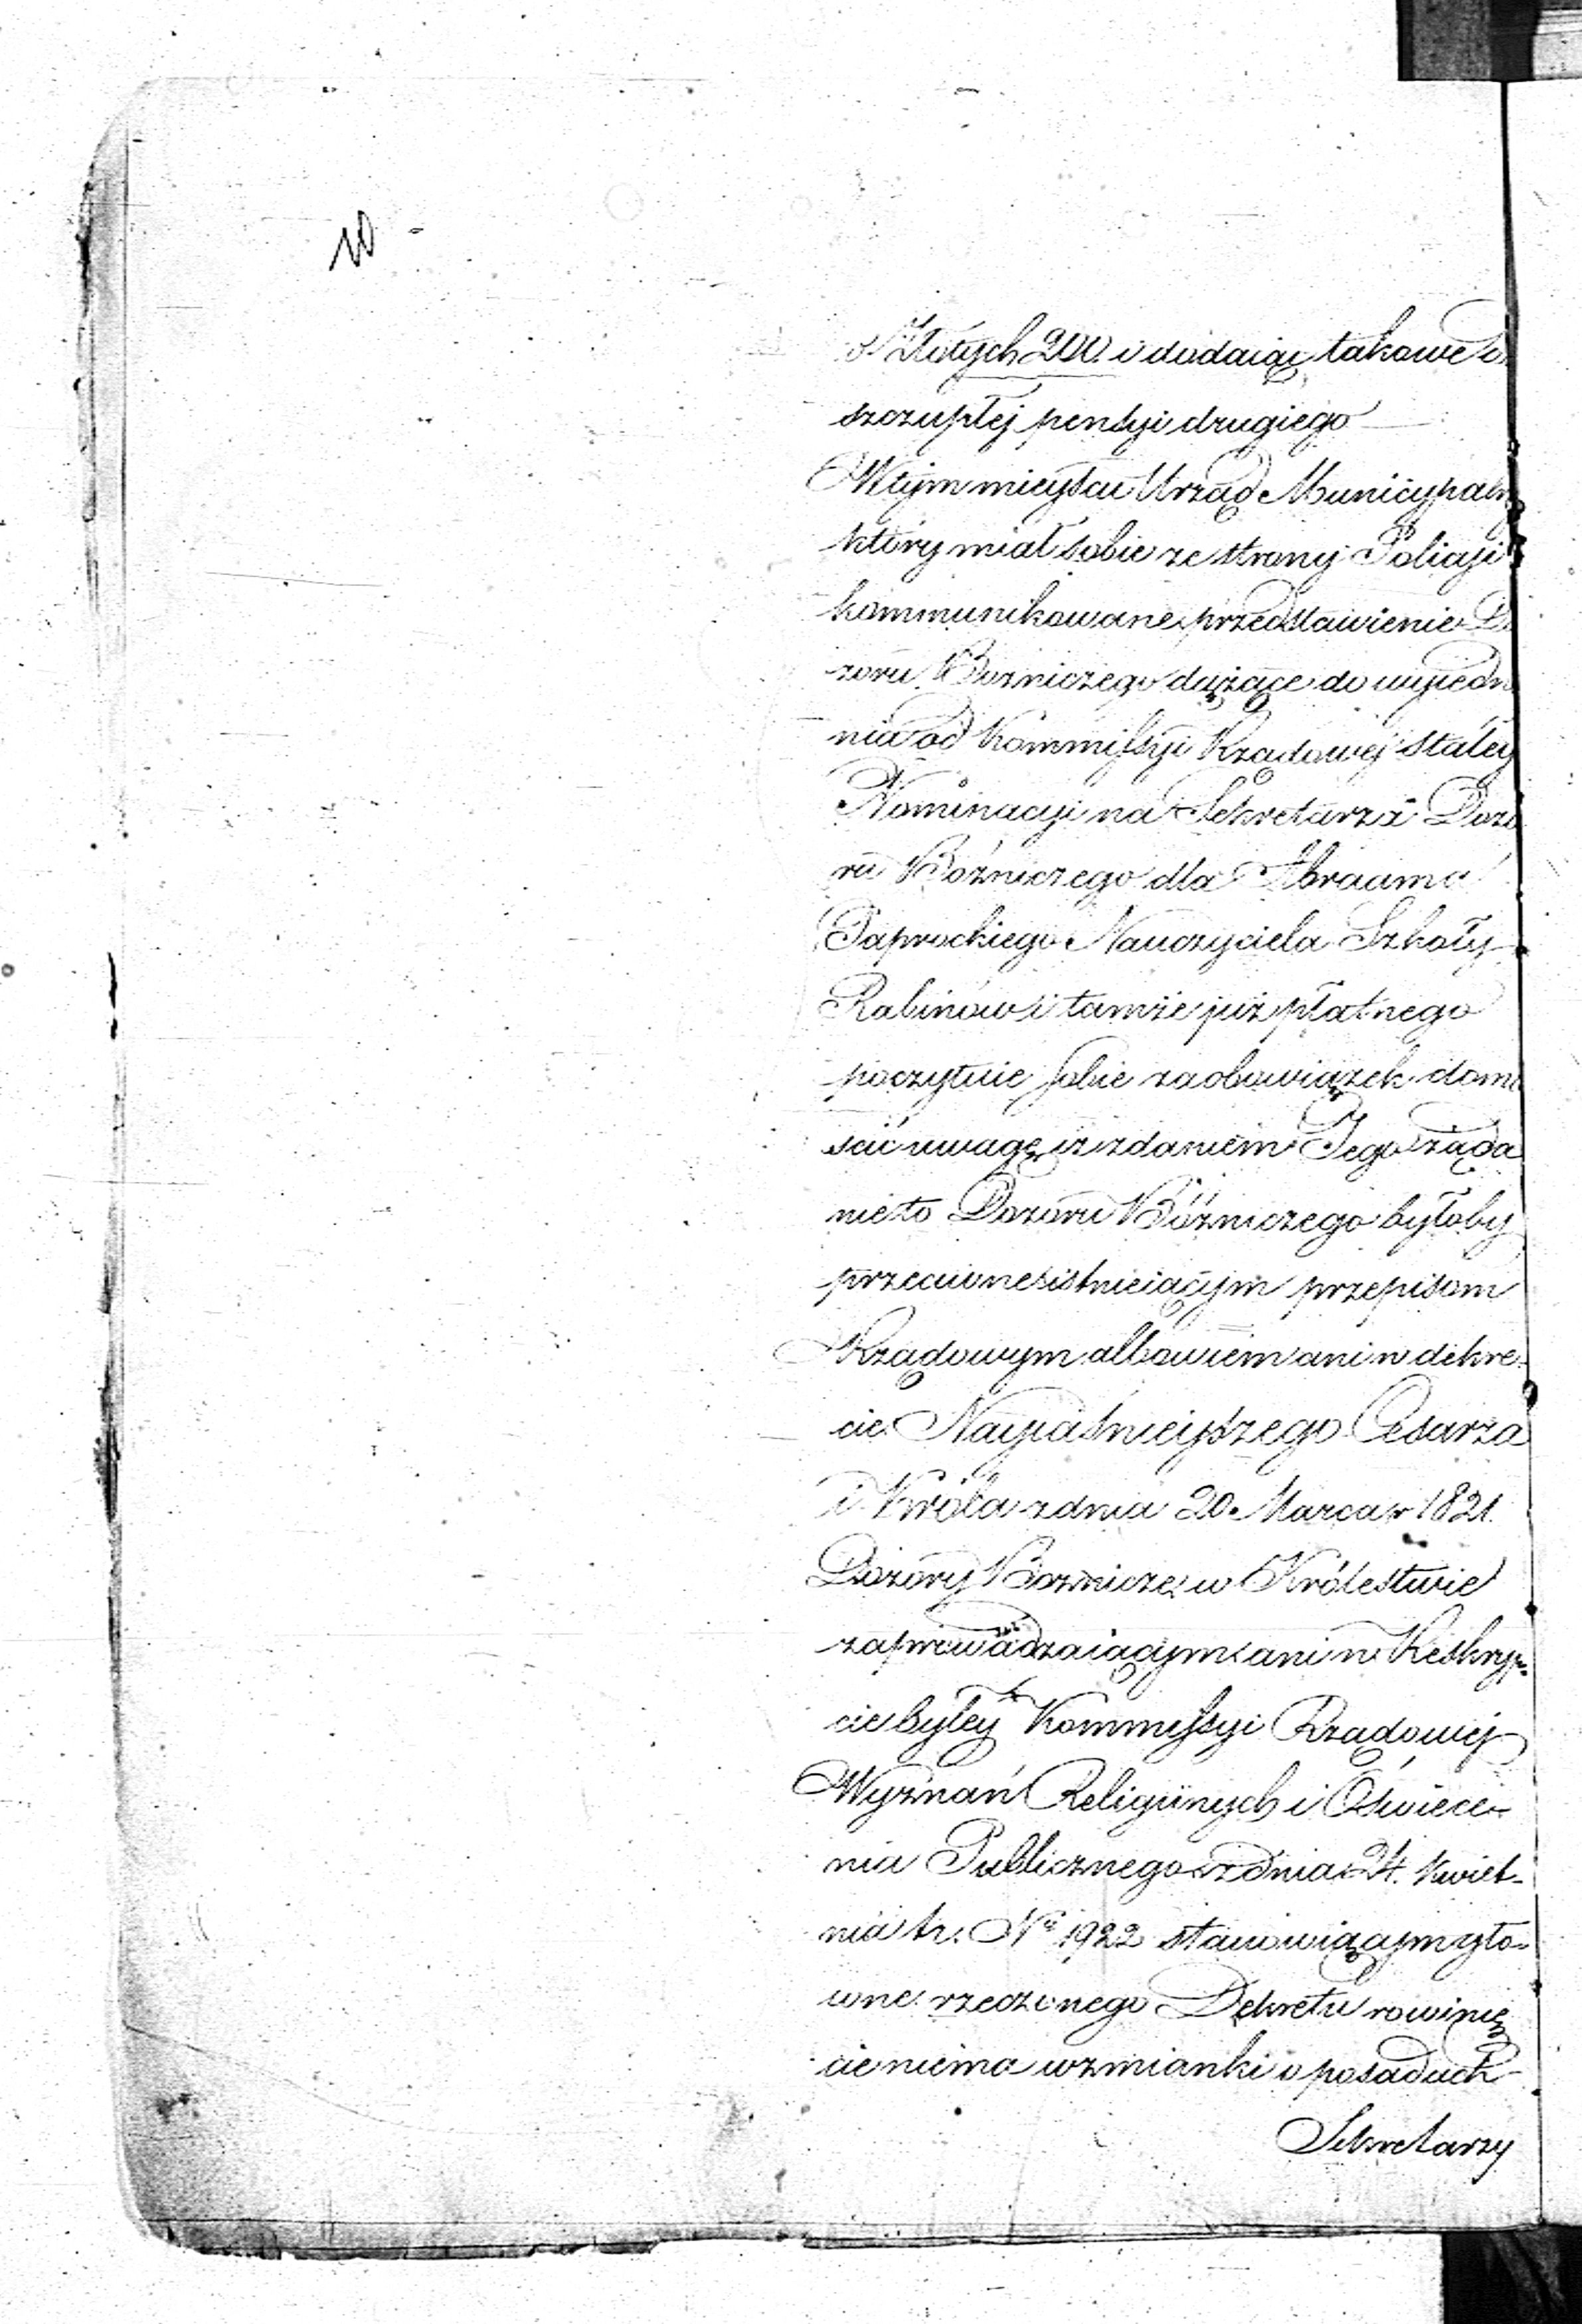 10
o Złotych 200. i dodaiąc takowe
szczupłej pensyi drugiego
W tym mieyscu Urząd Municypaln
który miał sobie ze strony Policyi
kommunikowane przedstawienie Do
zoru Bozniczego dążące do wyiedn
nia od Kommissyi Rządowej stałey
Nominacyi na Sekretarza Dozo
ru Bóżniczego dla Abraama
Paprockiego Nauczyciela Szkoły
Rabinów i tamże już płatnego
poczytuie sobie za obowiązek domi
scić uwagę iż zdaniem Jego żąda
nie to Dozoru Bóżniczego byłoby
przeciwne istnieiącym przepisom
Rządowym albowiem ani w dekre-
cie Nayiaśnieyszego Cesarza
i Króla z dnia 20 Marca r 1821.
Dozory Boznicze w Królestwie
zaprowadzaiącym ani w Reskryp-
cie byłey Kommissyi Rządowej
Wyznań Religiinych i Oświece-
nia Publicznego z dnia 24. Kwiet-
nia tr. Nº 1922 stanowiącym głó-
wne rzeczonego Dekretu rowinię
cie niema wzmianki o posadach
Sekretarzy